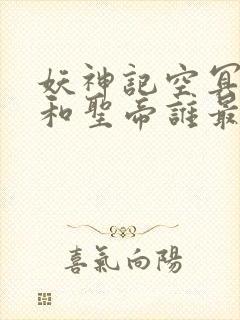 妖神記空冥
和聖帝誰最
喜氣向陽